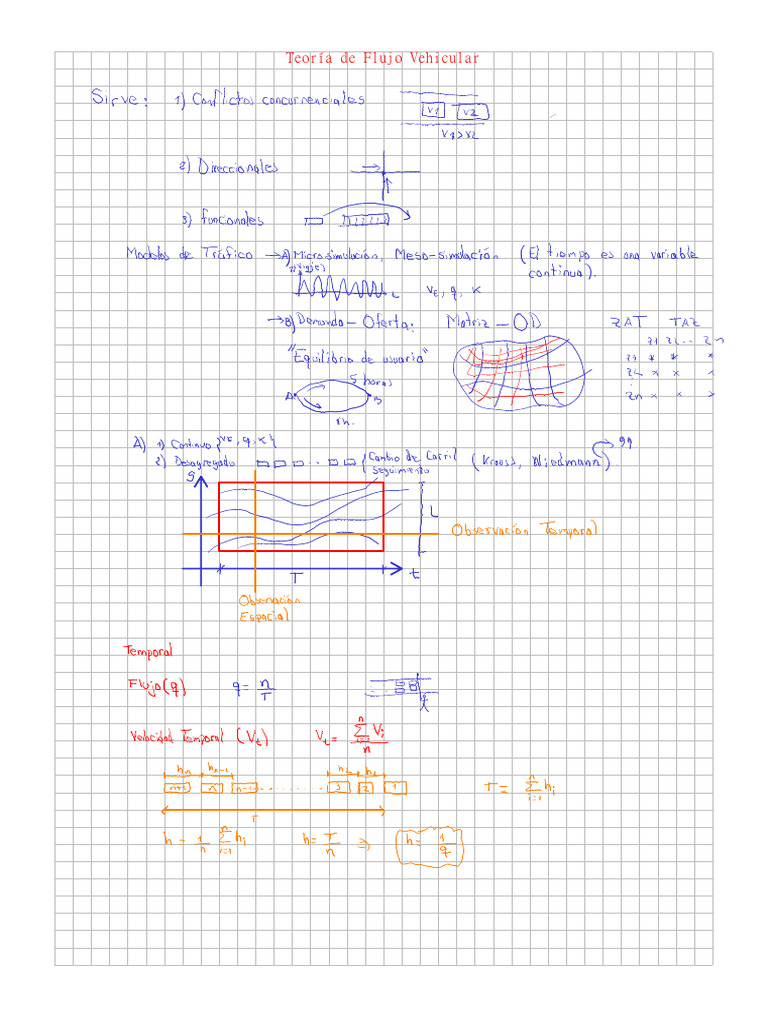 Teoría de Flujo Vehicular
Sirve: 1) Conflictos concurrenciales
V1 V2
V1>V2
2) Direccionales
3) funcionales
Modelos de Tráfico → A) Microsimulación, Meso-simulación (El tiempo es una variable continua).
L VE, q, K
→ B) Demanda - Oferta: Matriz - OD ZAT TAZ
z1 z2 ... zn
z1 * * *
z2 x x x
zn x x x
"Equilibrio de usuario"
5 horas
A B
1h.
A) 1) Continuo {VE, q, K}
2) Desagregado Cambio de Carril (Krauss, Wiedmann) 99
Seguimiento
L
Observación Temporal
T t
Observación
Espacial
Temporal
Flujo (q) q = n/T
Velocidad Temporal (Vt) Vt = ∑ⁿᵢ₌₁ Vi / n
hn hn-1 h2 h1
n+1 n n-1 ........ 3 2 1 T = ∑ⁿᵢ₌₁ hi
T
h = 1/n ∑ⁿᵢ₌₁ hi h = T/n ⇒ h = 1/q